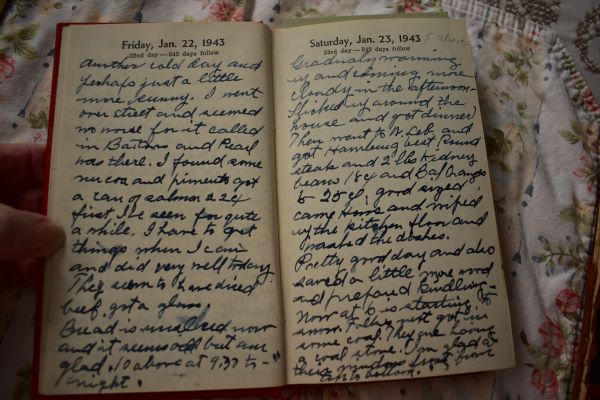 Friday, Jan. 22, 1943
22nd day — 343 days follow
Another cold day and
perhaps just a little
more sunny. I went
over street and seemed
no worse for it called
in Bartons and Pearl
was there. I found some
nucoa and pimento got
a can of salmon 22¢
first I've seen for quite
a while. I have to get
things when I can
and did very well today.
They seem to have diced
beef got a glass.
Bread is unsliced now
and it seems odd but am
glad. 10 above at 9:30 to-
night.
Saturday, Jan. 23, 1943 5 above
23rd day — 342 days follow
Gradually warming
up and coming more
cloudy in the afternoon
I picked up around the
house and got dinner
Then went to W. Leb. and
got Hamburg best Round
steak and 2 lbs Kidney
beans 18¢ and Oranges
25¢, good sized
came Home and wiped
up the kitchen floor and
washed the dishes.
Pretty good day and also
sawed a little more wood
and prepared Kindling.
Now at 6 is starting to
snow. Folks next got in
some coal. They are having
a coal stove. I'm glad
their windows from
top to bottom.